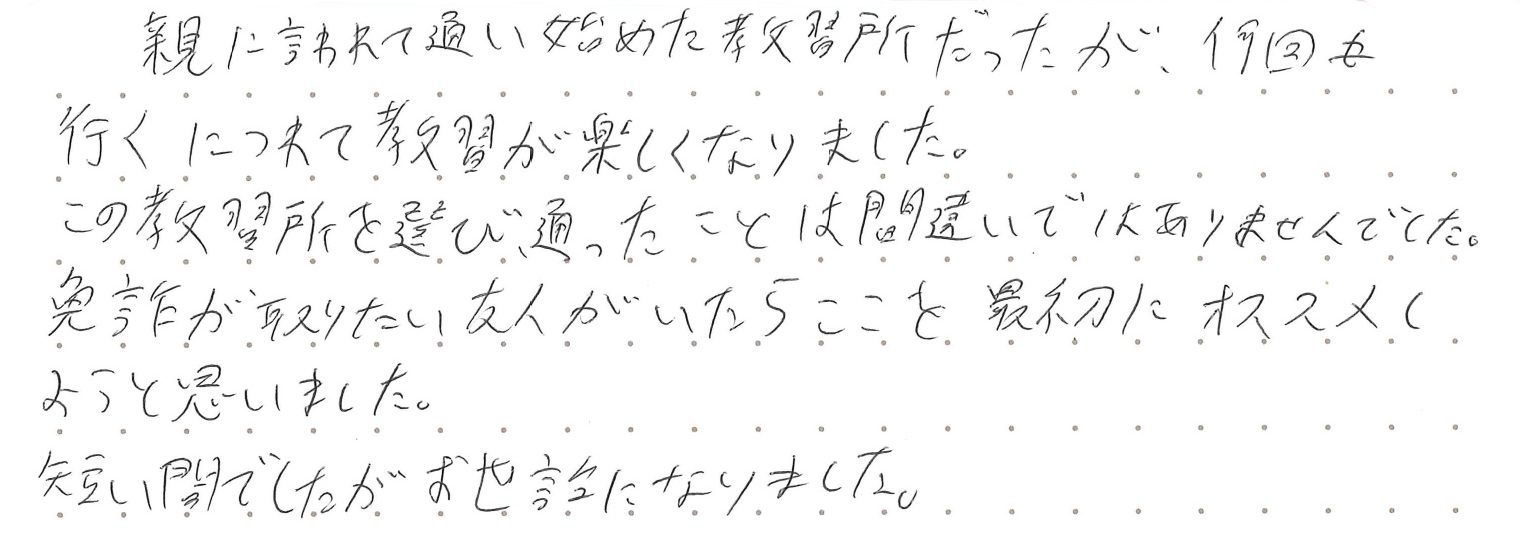 親に言われて通い始めた教習所だったが、何回も
行くにつれて教習が楽しくなりました。
この教習所を選び、通ったことは間違いではありませんでした。
免許が取りたい友人がいたらここを最初にオススメし
ようと思いました。
短い間でしたがお世話になりました。